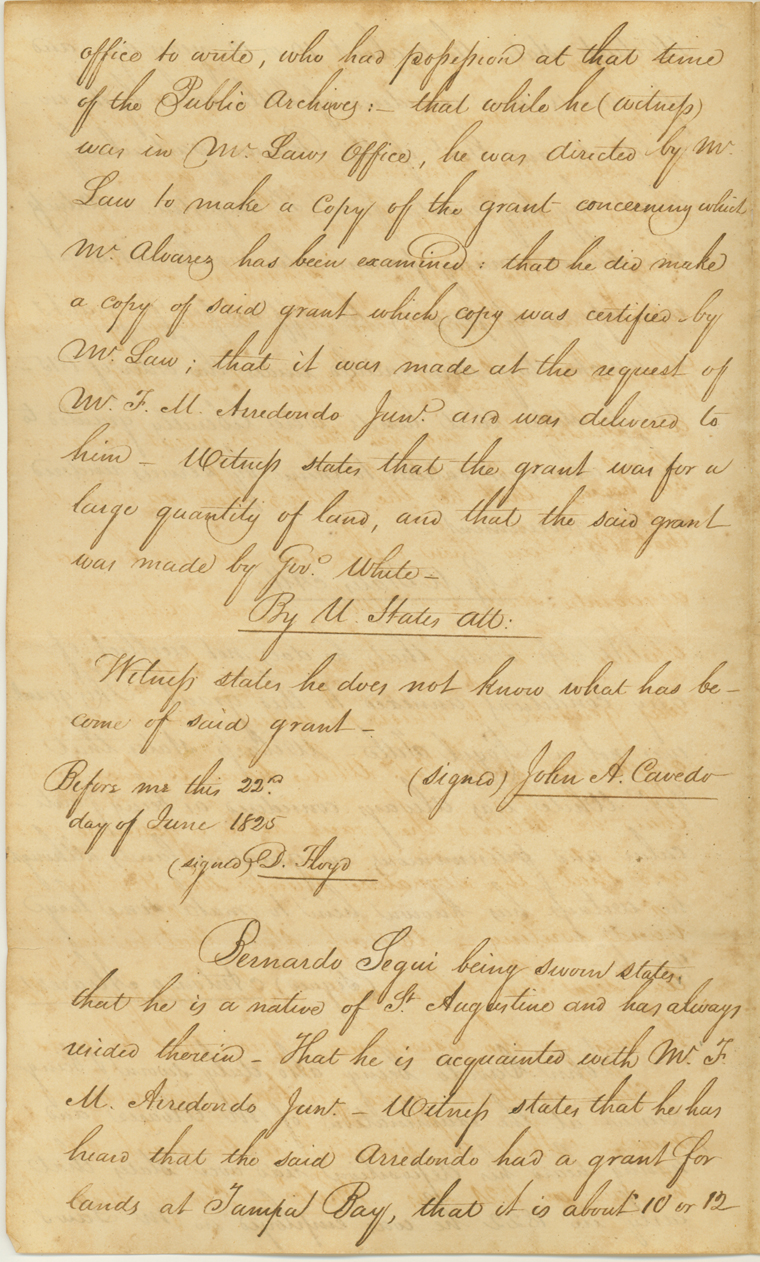 office to write, who had possession at that time
of the Public Archives:– that while he (witness)
was in Mr. Laws Office, he was directed by Mr.
Law to make a Copy of the grant concerning which
Mr. Alvarez has been examined: that he did make
a copy of said grant which copy was certified by
Mr. Law; that it was made at the request of
Mr. F. M. Arredondo Junr. and was delivered to
him – Witness states that the grant was for a
large quantity of land, and that the said grant
was made by Govr. White –
By U. States Att:
Witness states he does not know what has be–
come of said grant –
Before me this 22d.
(signed) John A. Cavedo
day of June 1825
(signed) D. Floyd
Bernardo Segui being sworn states.
that he is a native of St. Augustine and has always
resided therein – That he is acquainted with Mr. F.
M. Arredondo Junr. – Witness states that he has
heard that the said Arredondo had a grant for
lands at Tampa Bay, that it is about 10 or 12